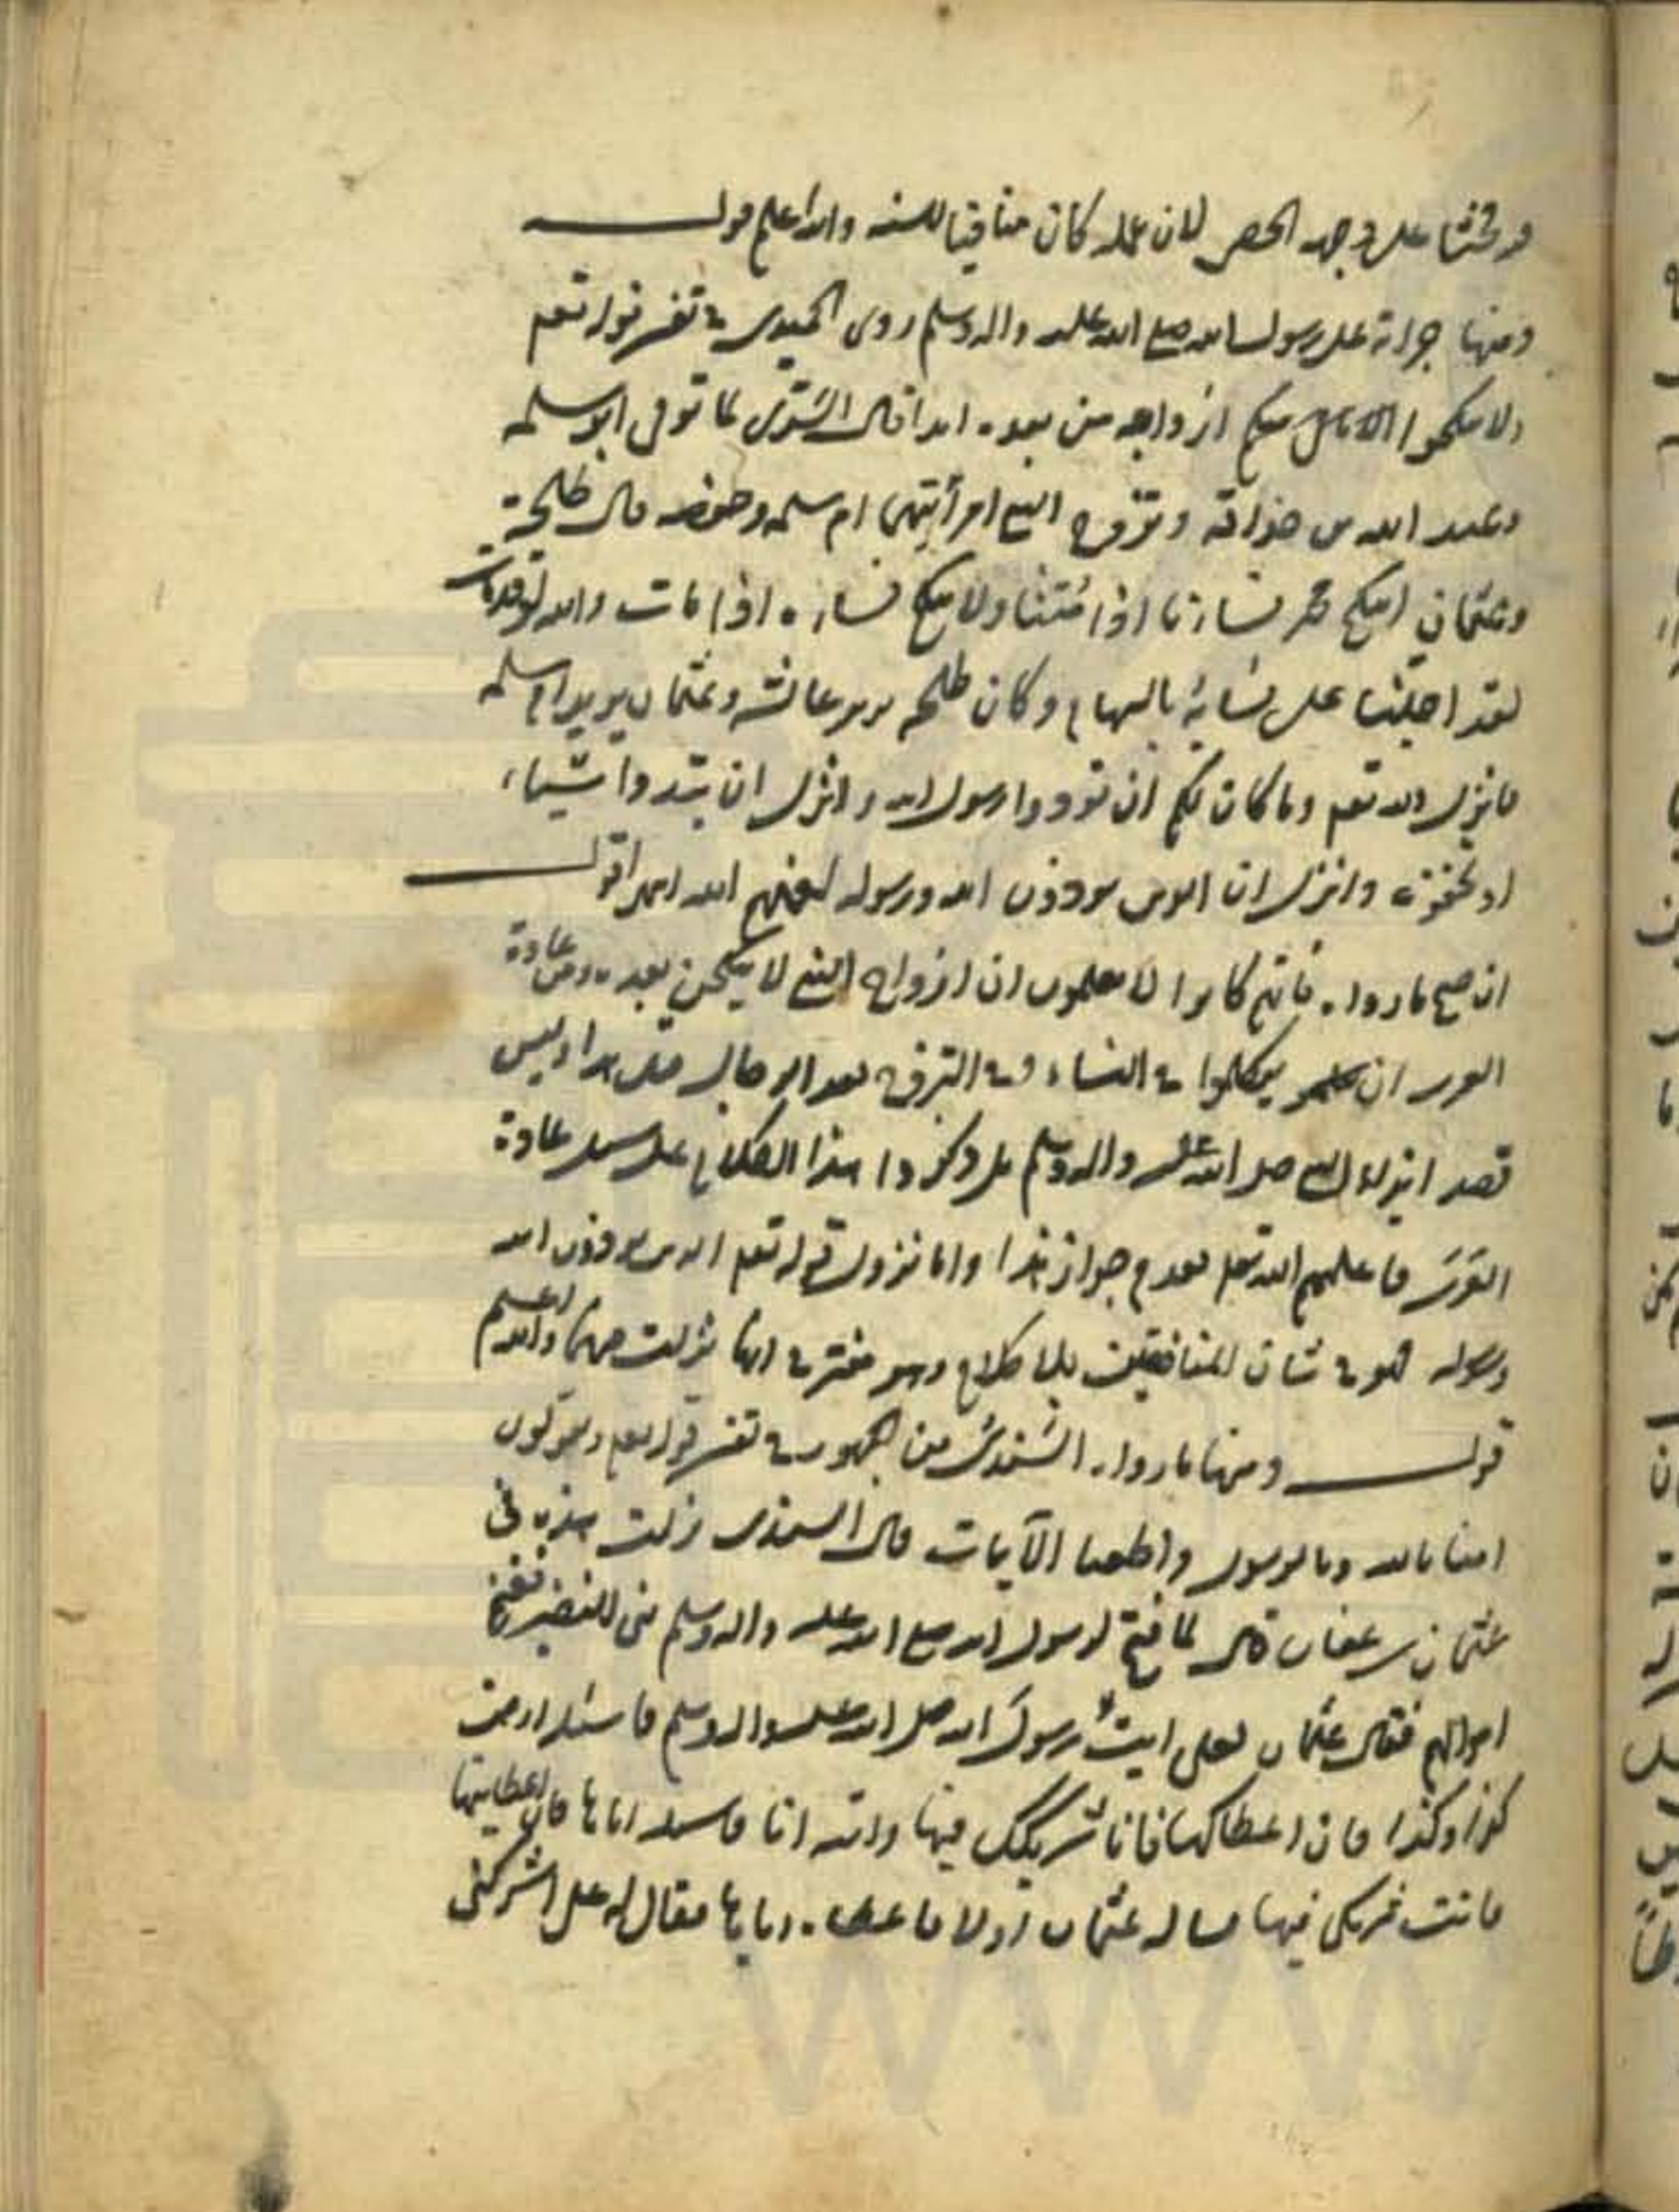 على وجه الحصر لان عمله كان منافيا للسنه والله اعلم قولـــه
ومنها جراته على رسول الله صلع الله عليه واله وسلم روى الحميدى في تفسر قوله تعم
ولا تنكحوا ازواجه من بعده ابدا قال السدى لما توفى ابو سلمه
وعبد الله بن حذافة وتزوج النبي امرأتيهما ام سلمه وحفصه قال طلحة
وعثمان اينكح محمد نساءنا اذا متنا ولا ننكح نساءه اذا مات والله لو قد مات
لقد اجلبنا على نسائه بالسهام وكان طلحه يريد عائشه وعثمان يريد ام سلمه
فانزل الله تعم وما كان لكم ان توذوا رسول الله وانزل ان تبدوا شيئا
او تخفوه وانزل ان الذين يوذون الله ورسوله لعنهم الله اقولـــ
ان صح ما رووا فانهم كانوا لا يعلمون ان ازواج النبي لا ينكحن بعده ومن عادة
العرب ان يتكلموا في النساء وفي التزوج بعد الرجال مثل هذا وليس
قصد ايذاء النبي صلى الله عليه واله وسلم بل ذكروا هذا الكلام على سبيل عادة
العرب فاعلمهم الله تعم بعدم جواز هذا واما نزول قوله تعم الذين يوذون الله
ورسوله فهو في شان المنافقين بلا كلام وهو مفتر في انها نزلت فيهما والله اعلم
قولـــه ومنها ما رواه السدى من الجمهور في تفسر قوله تعم ويقولون
امنا بالله وبالرسول واطعنا الآيات قال السدى نزلت هذه في
عثمان بن عفان قال لما فتح لرسول الله صلع الله عليه واله وسلم بنى النضير فغنم
اموالهم فقال عثمان لعلى ايت رسول الله صلى الله عليه واله وسلم فاسئله ارض
كذا وكذا فان اعطاكها فانا شريكك فيها واتيه انا فاسئله اياها فان اعطانيها
فانت شريكى فيها فساله عثمان اولا فاعطاه اياها فقال له على اشركنى